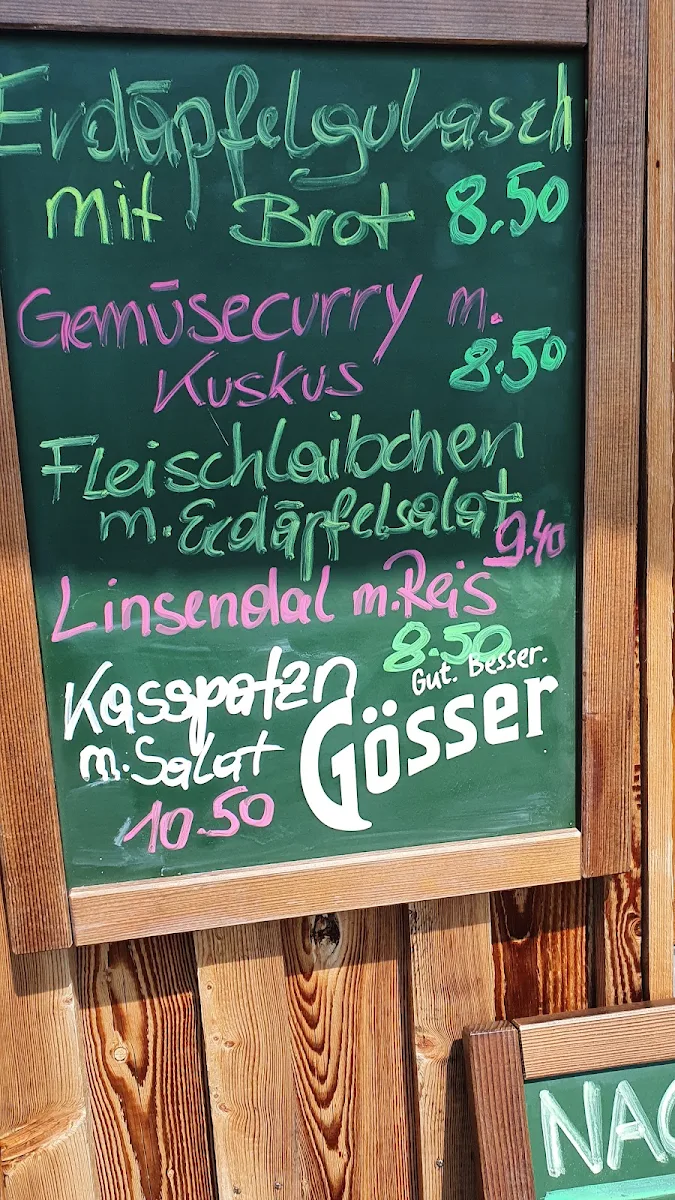 Erdäpfelgulasch
mit Brot 8.50
Gemüsecurry m.
Kuskus 8.50
Fleischlaibchen
m. Erdäpfelsalat
9.40
Linsendal m. Reis
8.50
Kasspatzn
m. Salat
10.50
Gut. Besser.
Gösser
NAC